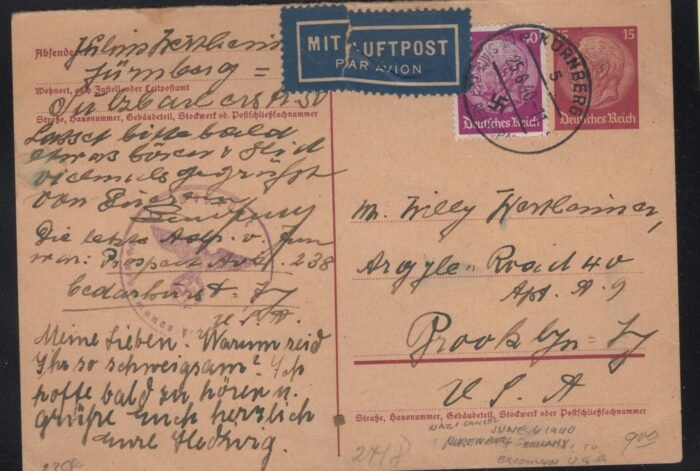 Absender: Julius Wertheimer
Nürnberg =
Wohnort, auch Zustell- oder Leitpostamt
Sulzbacherstr. 50
Straße, Hausnummer, Gebäudeteil, Stockwerk od. Postschließfachnummer
Lasset bitte bald
etwas hören & seid
vielmals gegrüßt
von Euerm
Die letzte Adr. v. Jum
war: Prospect Av. 238
Cedarhurst = NY
U.S.A.
Meine Lieben. Warum seid
Ihr so schweigsam? Ich
hoffe bald zu hören u.
grüße Euch herzlich
eure Hedwig.
MIT LUFTPOST
PAR AVION
40
Deutsches Reich
NÜRNBERG
25.6.40
5
15
15
Deutsches Reich
Mr. Willy Wertheimer,
Argyle Road 40
Apt. A 9
Brooklyn = NY
U.S.A
Straße, Hausnummer, Gebäudeteil, Stockwerk oder Postschließfachnummer
NAZI CANCEL
JUNE 6 1940
NUREMBERG GERMANY TO
BROOKLYN U.S.A
900